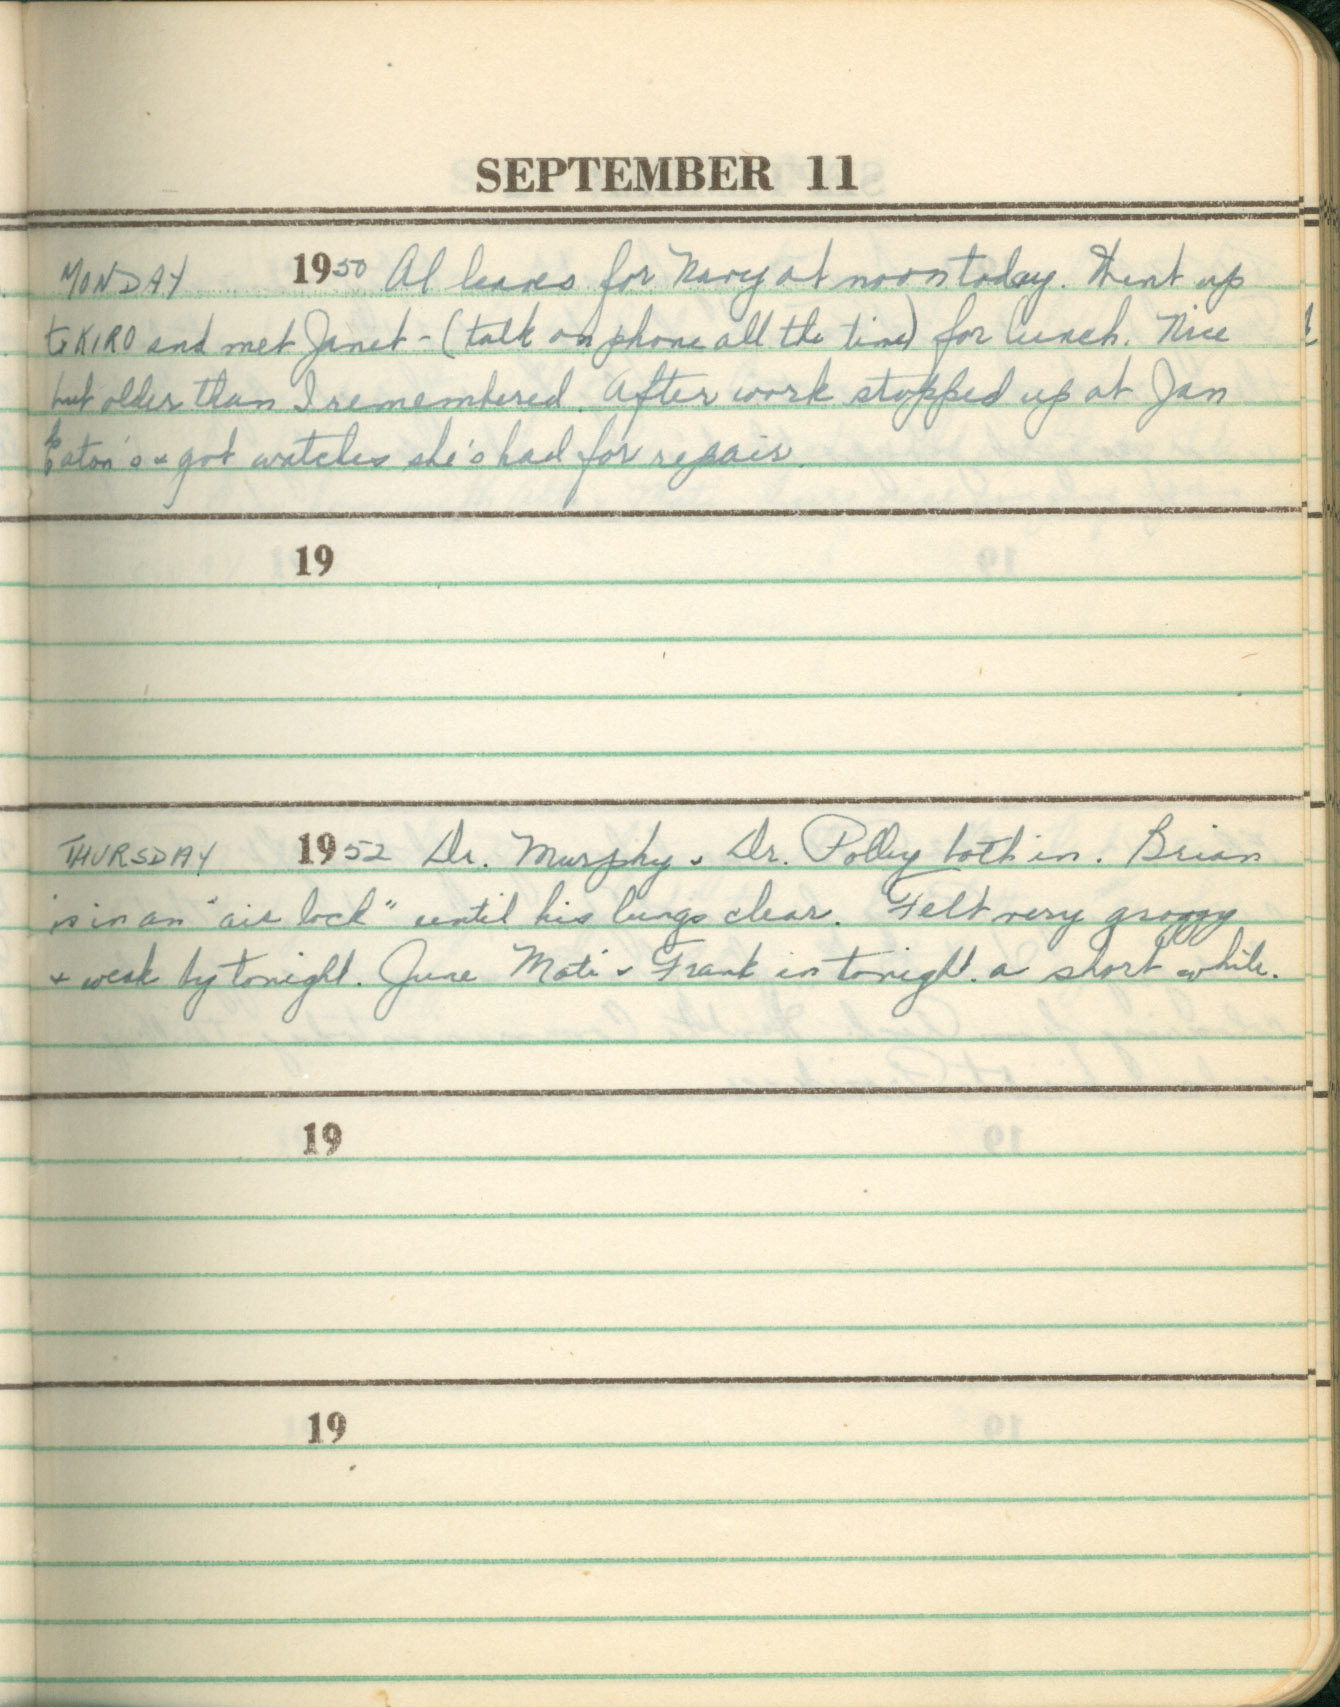 SEPTEMBER 11
MONDAY 1950 Al leaves for Navy at noon today. Went up
to KIRO and met Janet - (talk on phone all the time) for lunch. Nice
but older than I remembered. After work stopped up at Jan
Eaton's & got watches she's had for repair.
19
THURSDAY 1952 Dr. Murphy & Dr. Polley both in. Brian
is in an "air lock" until his lungs clear. Felt very groggy
& weak by tonight. June Mati & Frank in tonight a short while.
19
19